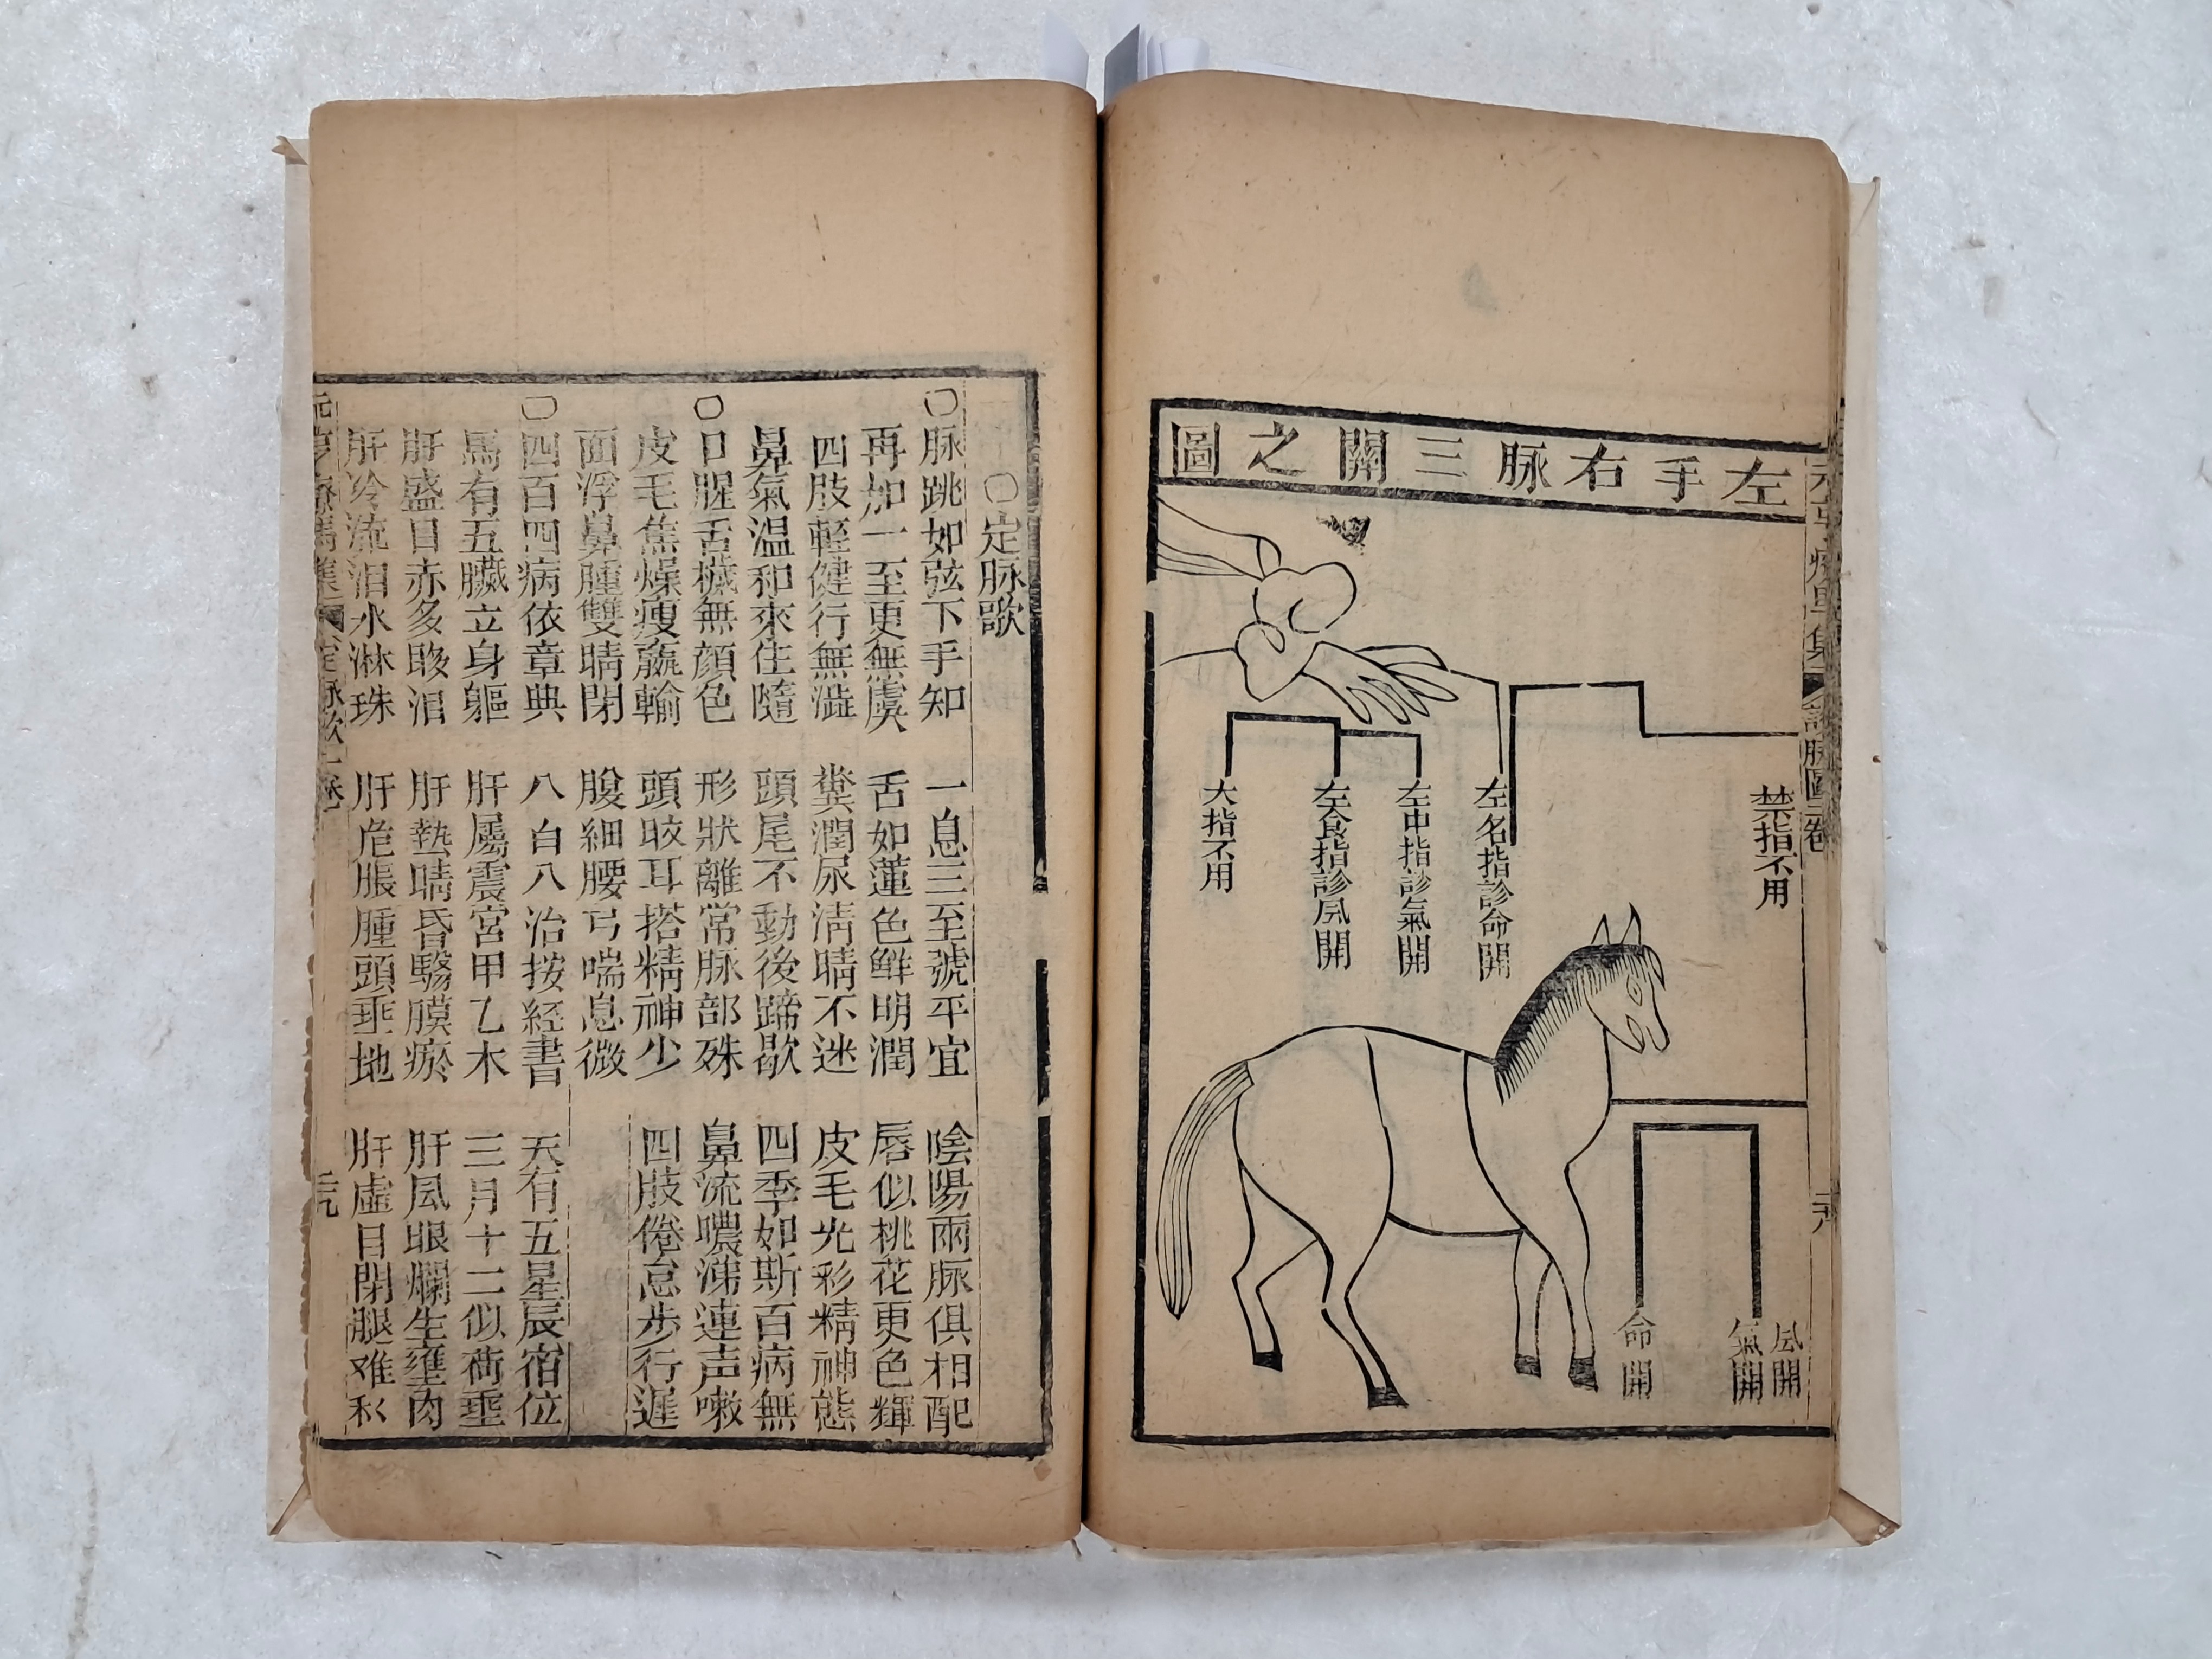 左手右脉三關之圖
禁指不用
左名指診命開
左中指診氣開
左食指診凨開
大指不用
凨開
氣開
命開
〇定脉歌
〇脉跳如弦下手知 一息三至號平宜 陰陽兩脉俱相配
再加一至更無虞 舌如蓮色鮮明潤 唇似桃花更色輝
四肢輕健行無澁 糞潤尿淸睛不迷 皮毛光彩精神態
鼻氣温和來往隨 頭尾不動後蹄歇 四季如斯百病無
〇口腥舌穢無顔色 形狀離常脉部殊 鼻流噥涕連声嗽
皮毛焦燥瘦羸輸 頭咬耳搭精神少 四肢倦怠步行遲
面浮鼻腫雙睛閉 腹細腰弓喘息微
〇四百四病依章典 八百八治按経書 天有五星辰宿位
馬有五臟立身軀 肝屬震宮甲乙木 三月十二似荷垂
肝盛目赤多眵泪 肝熱睛昏翳膜瘀 肝凨眼爛生瘗肉
肝冷流泪水淋珠 肝危脹腫頭垂地 肝虛目閉腿难移
元亨療馬集 定脉歌 一卷